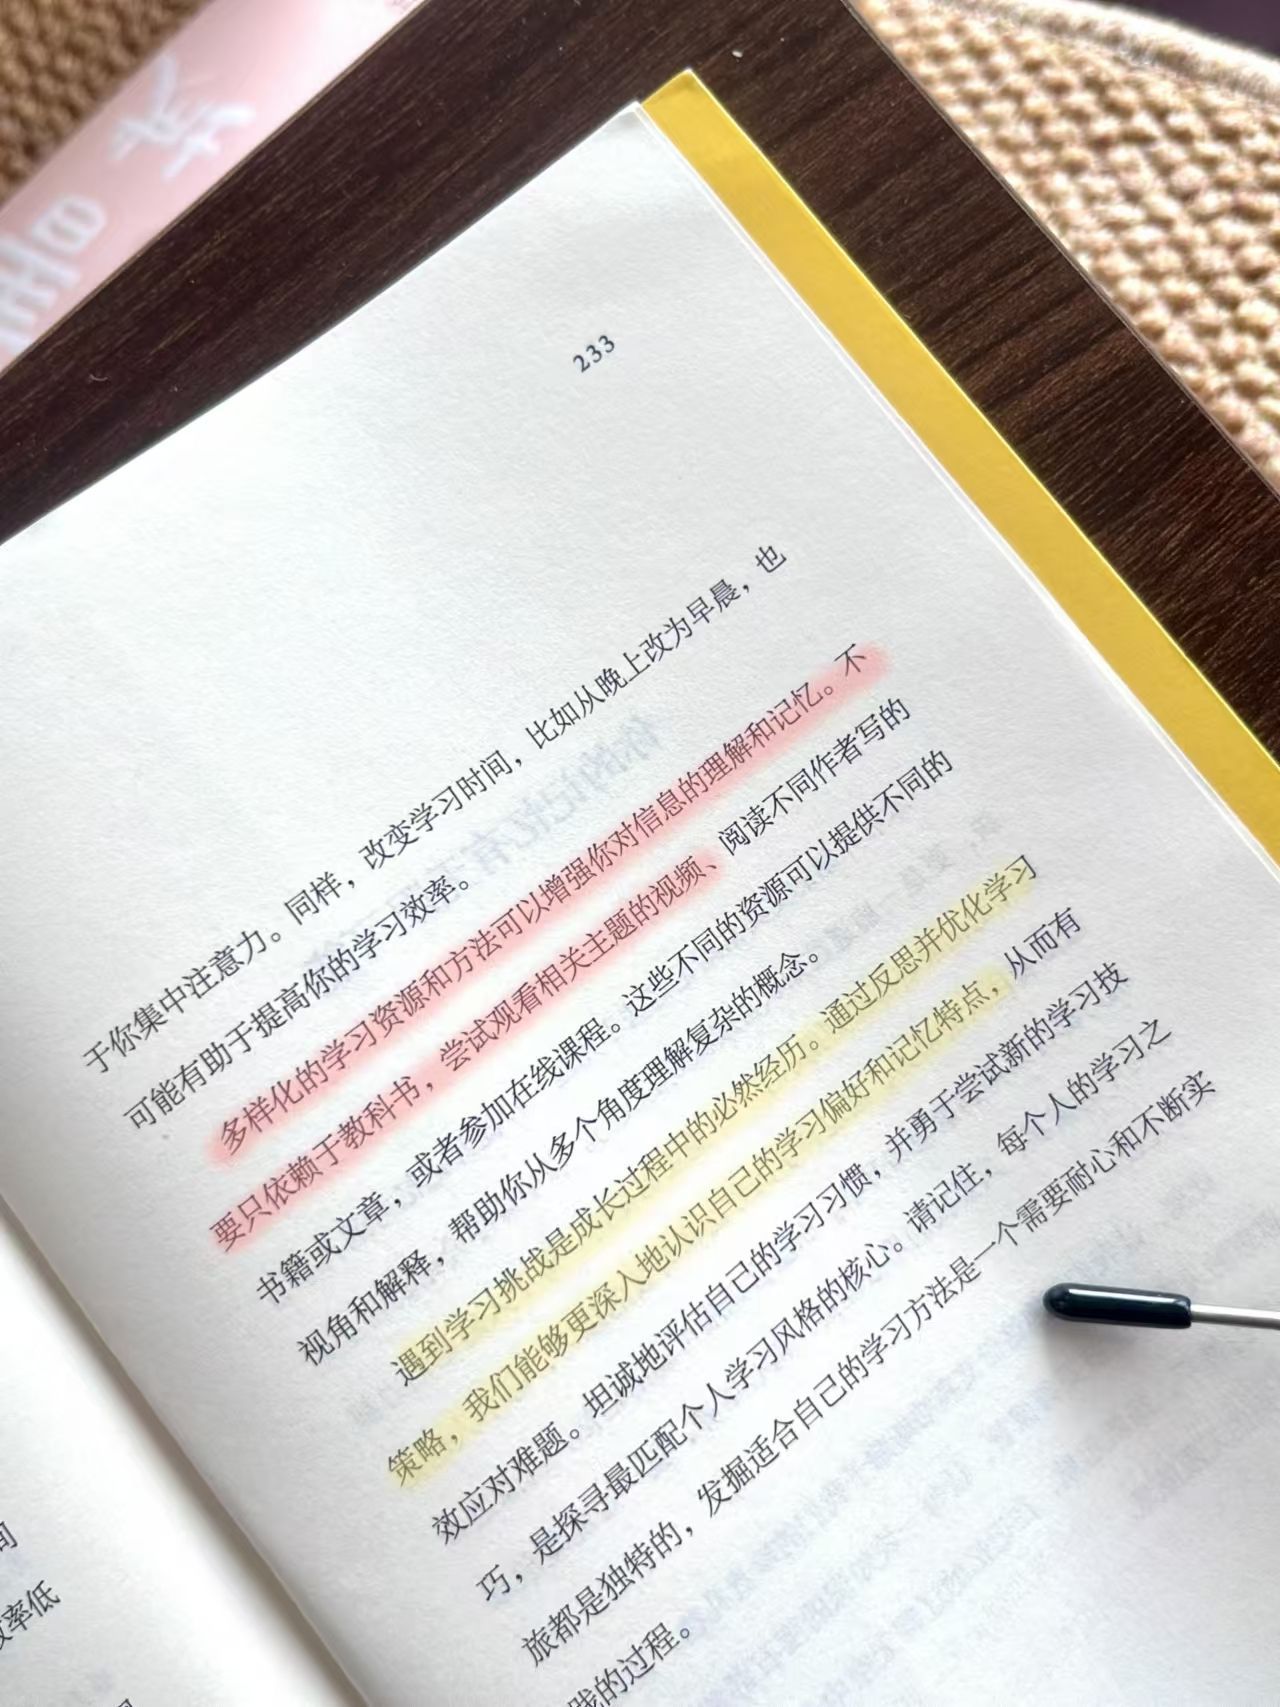 233
于你集中注意力。同样，改变学习时间，比如从晚上改为早晨，也
可能有助于提高你的学习效率。
多样化的学习资源和方法可以增强你对信息的理解和记忆。不
要只依赖于教科书，尝试观看相关主题的视频、阅读不同作者写的
书籍或文章，或者参加在线课程。这些不同的资源可以提供不同的
视角和解释，帮助你从多个角度理解复杂的概念。
遇到学习挑战是成长过程中的必然经历。通过反思并优化学习
策略，我们能够更深入地认识自己的学习偏好和记忆特点，从而有
效应对难题。坦诚地评估自己的学习习惯，并勇于尝试新的学习技
巧，是探寻最匹配个人学习风格的核心。请记住，每个人的学习之
旅都是独特的，发掘适合自己的学习方法是一个需要耐心和不断实
践的过程。
间
效率低